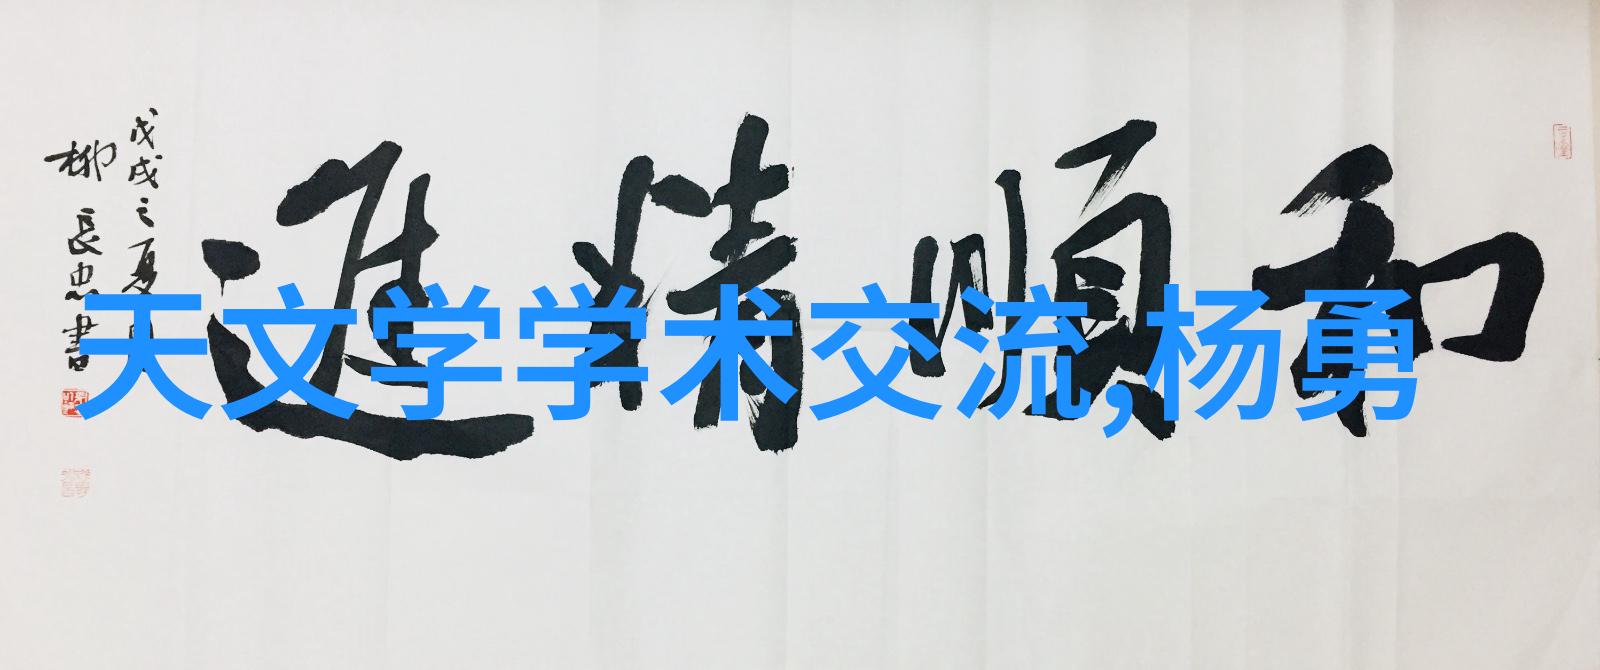 和順精進
戊戌之夏
柳長忠書
天文学学术交流,杨勇